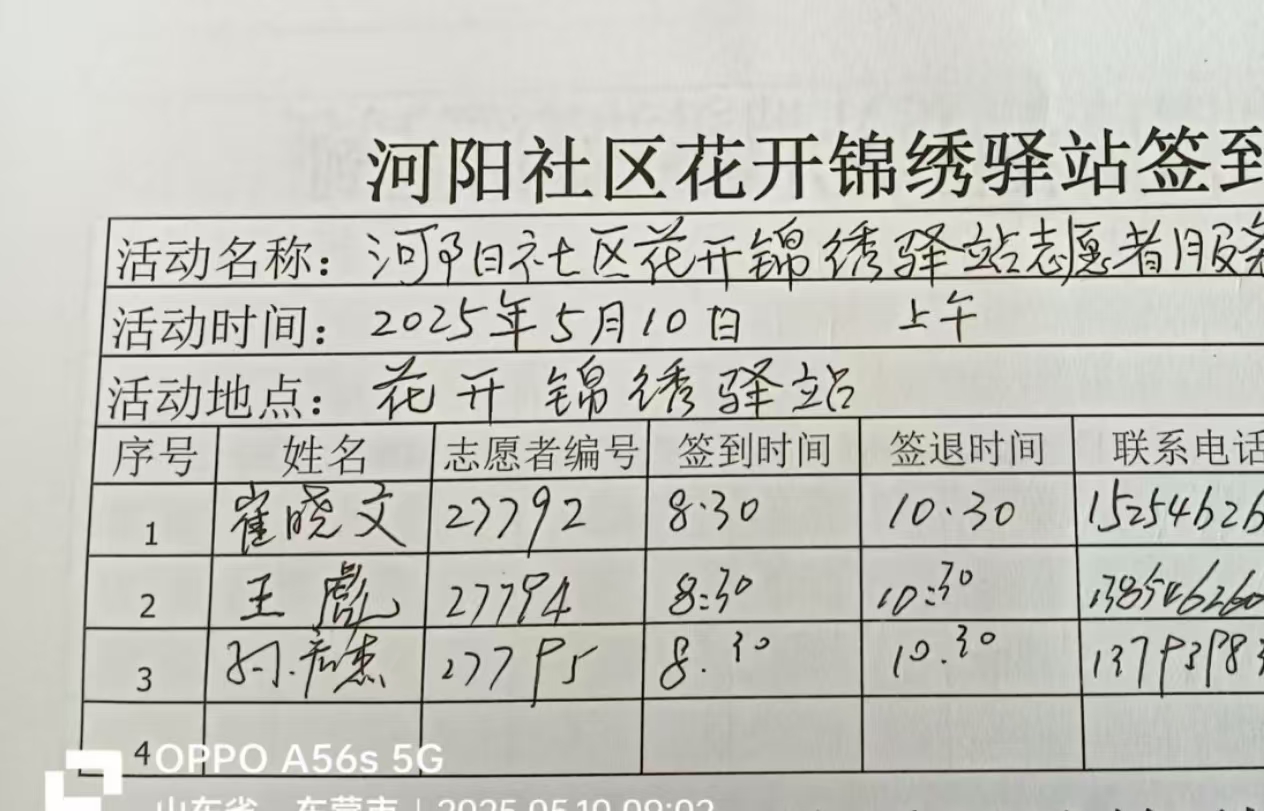 河阳社区花开锦绣驿站签到
活动名称：河阳社区花开锦绣驿站志愿者服务
活动时间：2025年5月10日 上午
活动地点：花开锦绣驿站
序号 姓名 志愿者编号 签到时间 签退时间 联系电话
1 崔晓文 27792 8:30 10:30 15254626
2 王彪 27794 8:30 10:30 138546260
3 27795 8.30 10.30 13793983
4
OPPO A56s 5G
山东省 东营市 | 2025.05.10 09:02